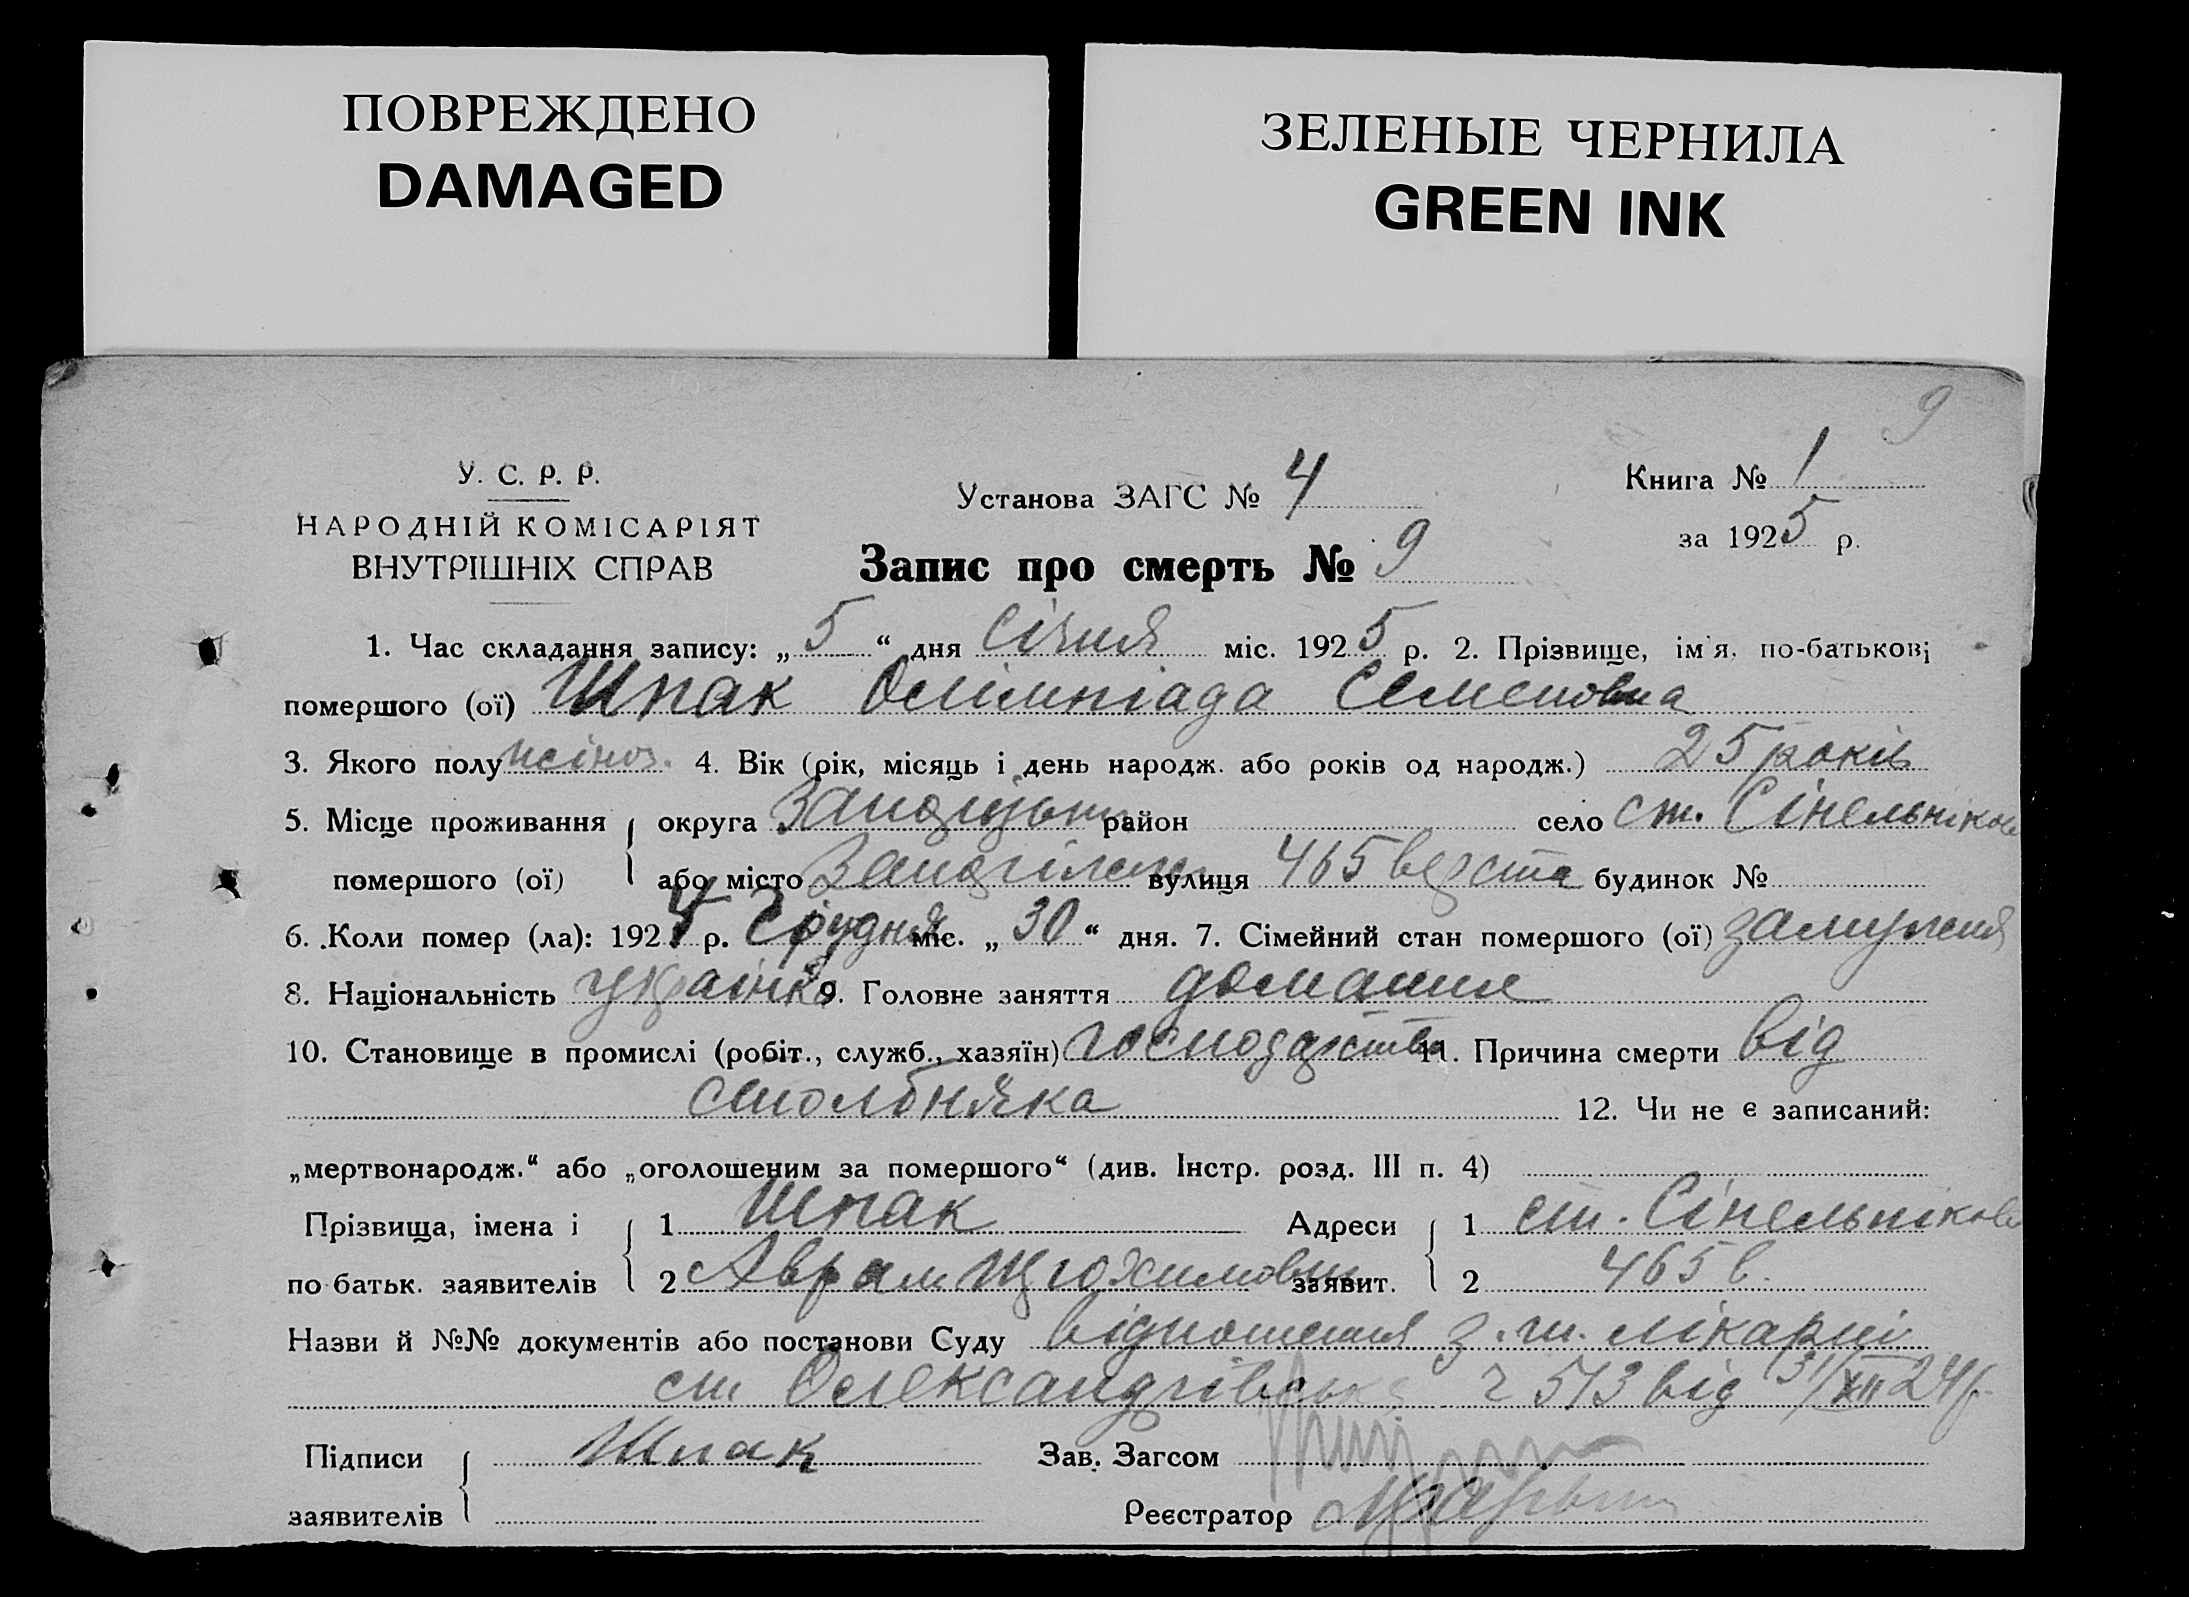 ПОВРЕЖДЕНО
DAMAGED
ЗЕЛЕНЫЕ ЧЕРНИЛА
GREEN INK
9
У. С. Р. Р.
НАРОДНІЙ КОМІСАРІЯТ
ВНУТРІШНІХ СПРАВ
Установа ЗАГС № 4
Книга № 1
за 1925 р.
Запис про смерть № 9
1. Час складання запису: „ 5 “ дня Січня міс. 1925 р. 2. Прізвище, ім'я, по-батькові
помершого (ої) Шпак Олімпіада Семеновна
3. Якого полу жіноч. 4. Вік (рік, місяць і день народж. або років од народж.) 25 років
5. Місце проживання округа район село ст. Сінельніково
помершого (ої) або місто вулиця 465 верста будинок №
6. Коли помер (ла): 1924 р. Грудня міс. „ 30 “ дня. 7. Сімейний стан помершого (ої) замужня
8. Національність українка 9. Головне заняття домашнє
10. Становище в промислі (робіт., служб., хазяїн) господарство 11. Причина смерти від
столбняка 12. Чи не є записаний:
„мертвонародж.“ або „оголошеним за помершого“ (див. Інстр. розд. III п. 4)
Прізвища, імена і 1 Шпак Адреси 1 ст. Сінельніково
по батьк. заявителів 2 Аврам заявит. 2 465 в.
Назви й №№ документів або постанови Суду відношення з. ш. лікарні
ст Олександрівськ ч 513 від 31/XII 24 р.
Підписи Шпак Зав. Загсом
заявителів Реєстратор